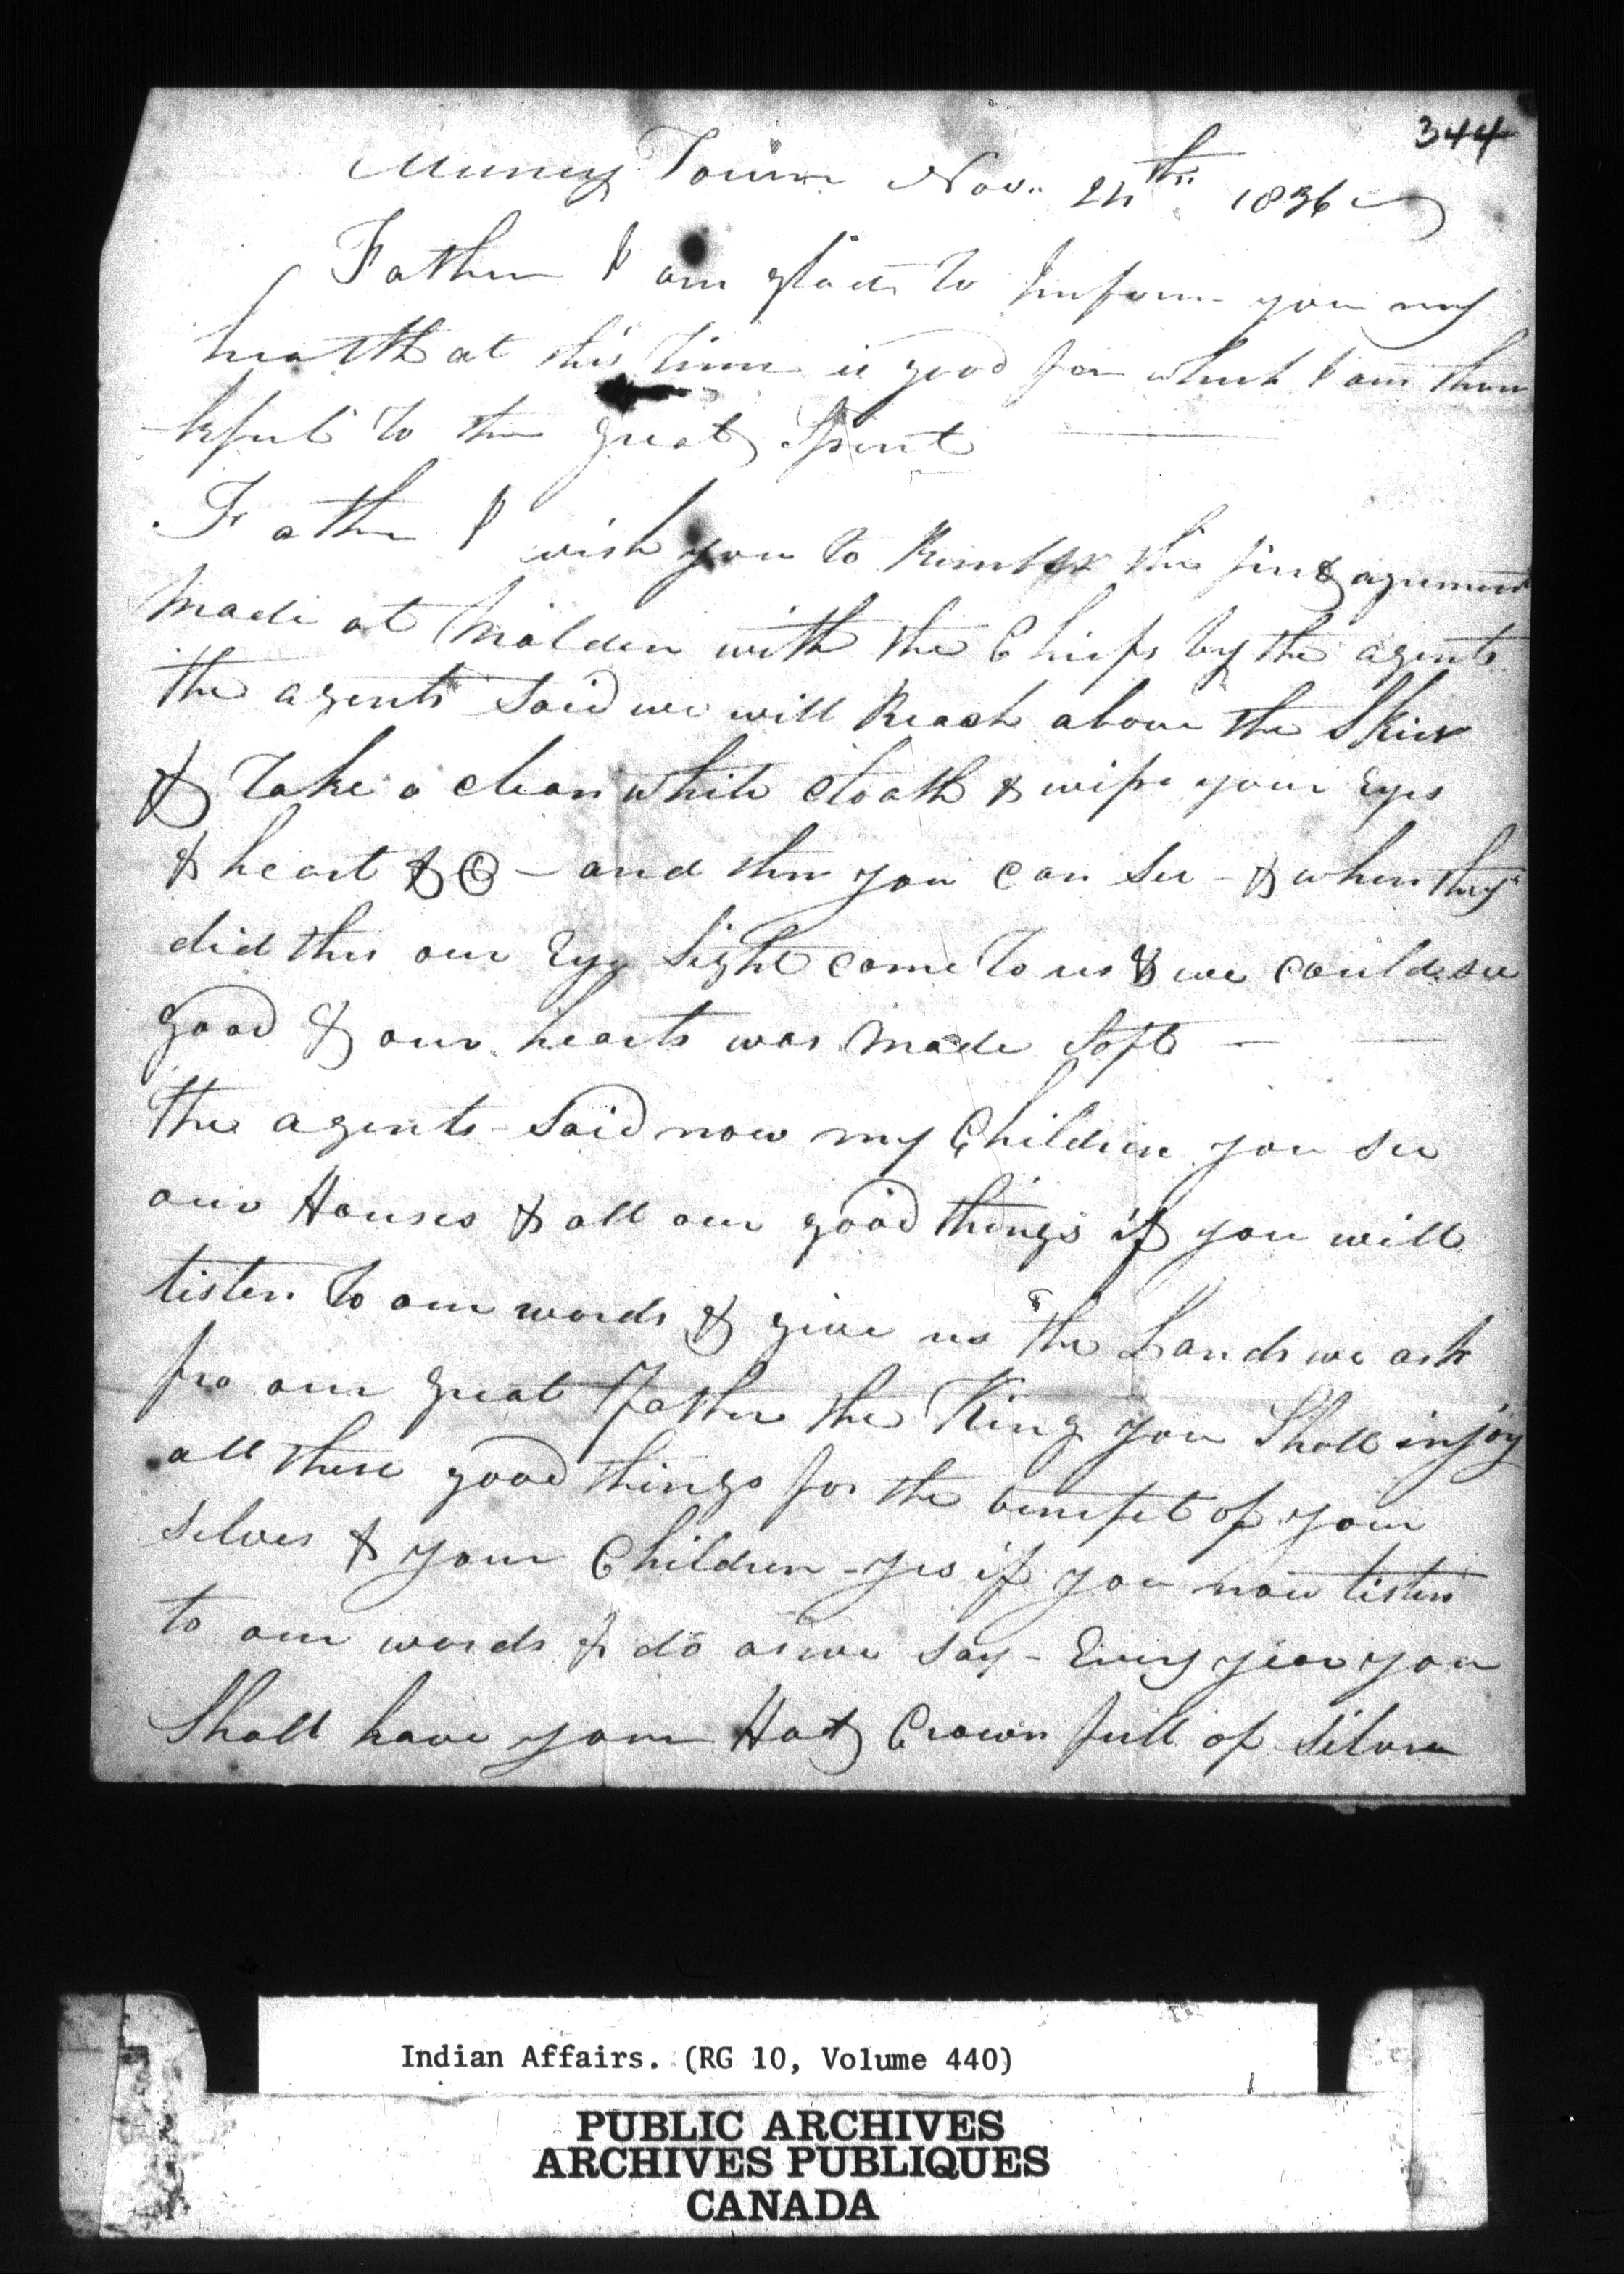 344
Muncy Town Nov. 24th 1836
Father I am glad to Inform you my
health at this time is good for which I am than
kful to the great Spirit
Father I wish you to Rember the first agrement
made at Malden with the Chiefs by the agents
the agents Said we will Reach above the Skies
& Take a clean white cloath & wipe your Eyes
& heart & C - and then you can See - & when they
did this our Eye Sight come to us & we could see
good & our hearts was made Soft -
The agents Said now my Children you see
our Houses & all our good things if you will
listen to our words & give us the Lands we ask
fro our great Father the King you Shall injoy
all these good things for the benifet of your
selves & your Children - yes if you now listen
to our words & do as we say - Every year you
Shall have your Hat Crown full of Silver
Indian Affairs. (RG 10, Volume 440)
PUBLIC ARCHIVES
ARCHIVES PUBLIQUES
CANADA